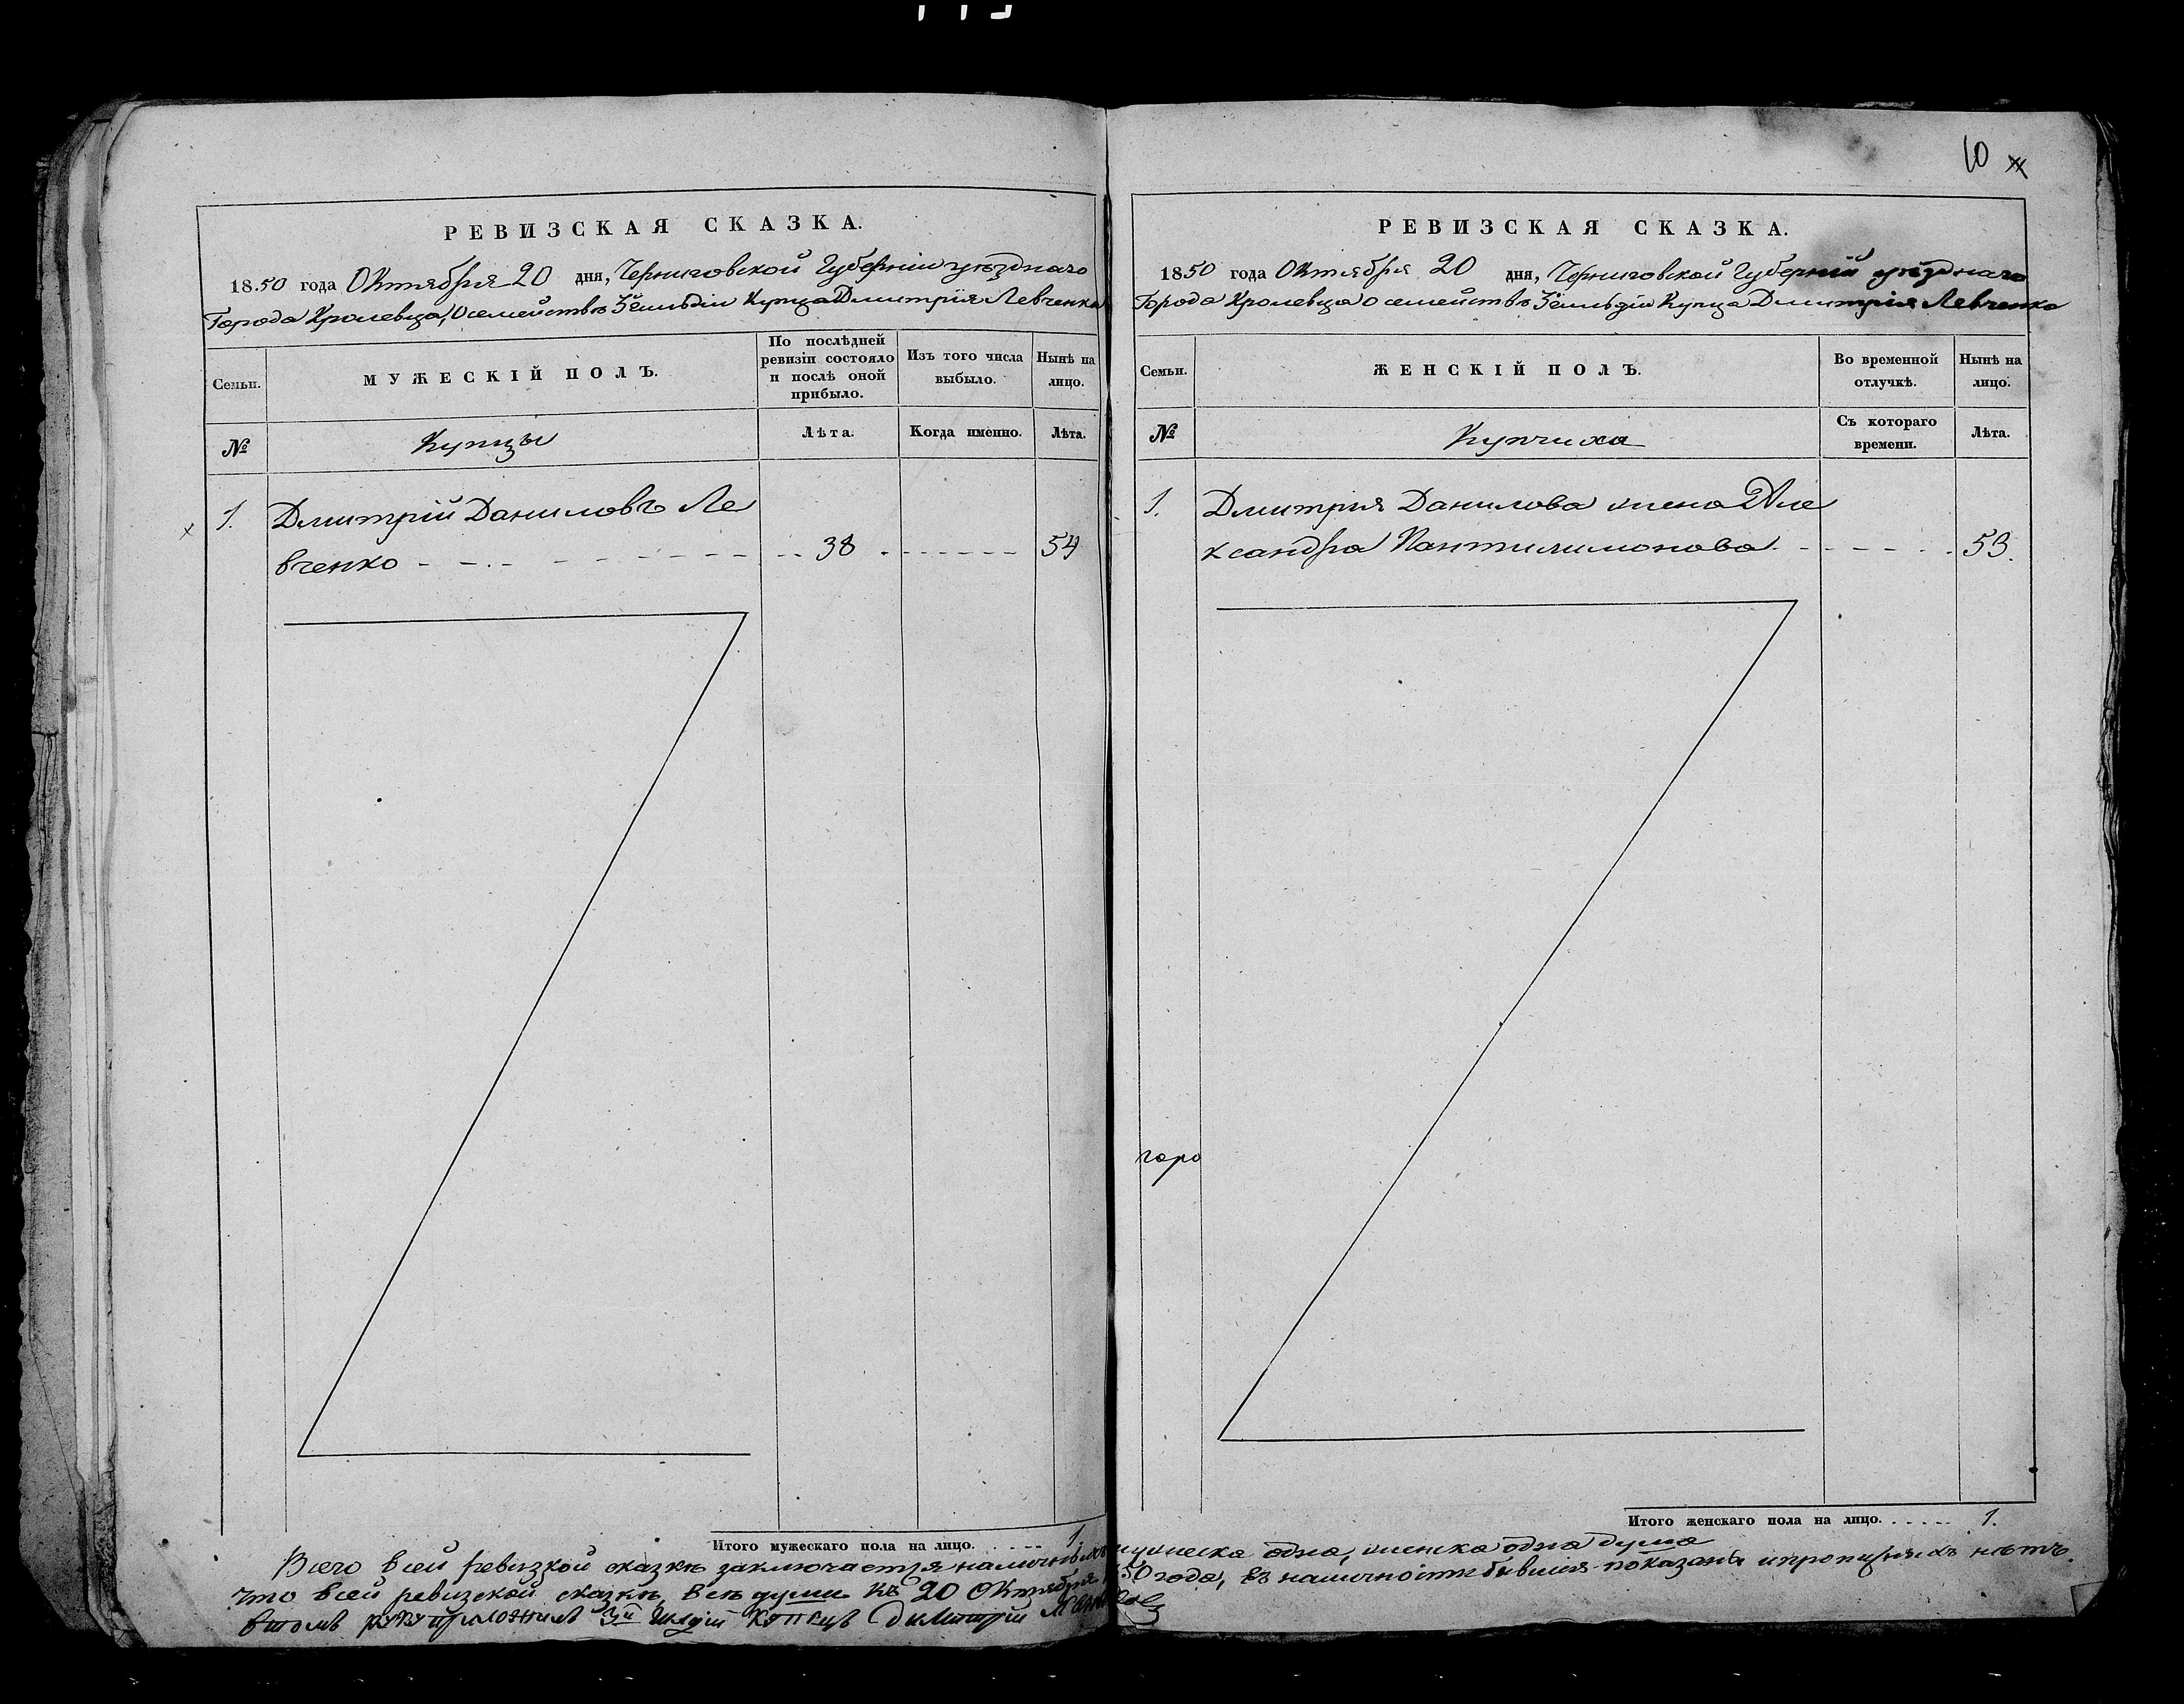 10
РЕВИЗСКАЯ СКАЗКА.
1850 года Октября 20 дня, Черниговской Губерніи уѣзднаго
Города Кролевца, о семействѣ 3й Гильдіи Купца Дмитрія Левченка
Семьи.
МУЖЕСКІЙ ПОЛЪ.
По послѣдней ревизіи состояло и послѣ оной прибыло.
Изъ того числа выбыло.
Нынѣ на лицо.
№
Купцы
Лѣта.
Когда именно.
Лѣта.
1. Дмитрій Даниловъ Ле
вченко 38 54
Итого мужескаго пола на лицо. 1.
РЕВИЗСКАЯ СКАЗКА.
1850 года Октября 20 дня, Черниговской Губерніи уѣзднаго
Города Кролевца о семействѣ 3й Гильдіи Купца Дмитрія Левченко
Семьи.
ЖЕНСКІЙ ПОЛЪ.
Во временной отлучкѣ.
Нынѣ на лицо.
№
Купчиха
Съ котораго времени.
Лѣта.
1. Дмитрія Данилова жена Але
ксандра Пантилимонова 53.
горо
Итого женскаго пола на лицо. 1.
Всего всей ревизкой сказкѣ заключается наличныхъ мужеска одна, женска одна душа
что всей ревизской сказкѣ, всѣ души къ 20 Октября 1850 года, въ наличности бывшія показаны и пропущеныхъ нѣтъ.
втомъ руку приложилъ 3й Гилдіи Купецъ Димитрій